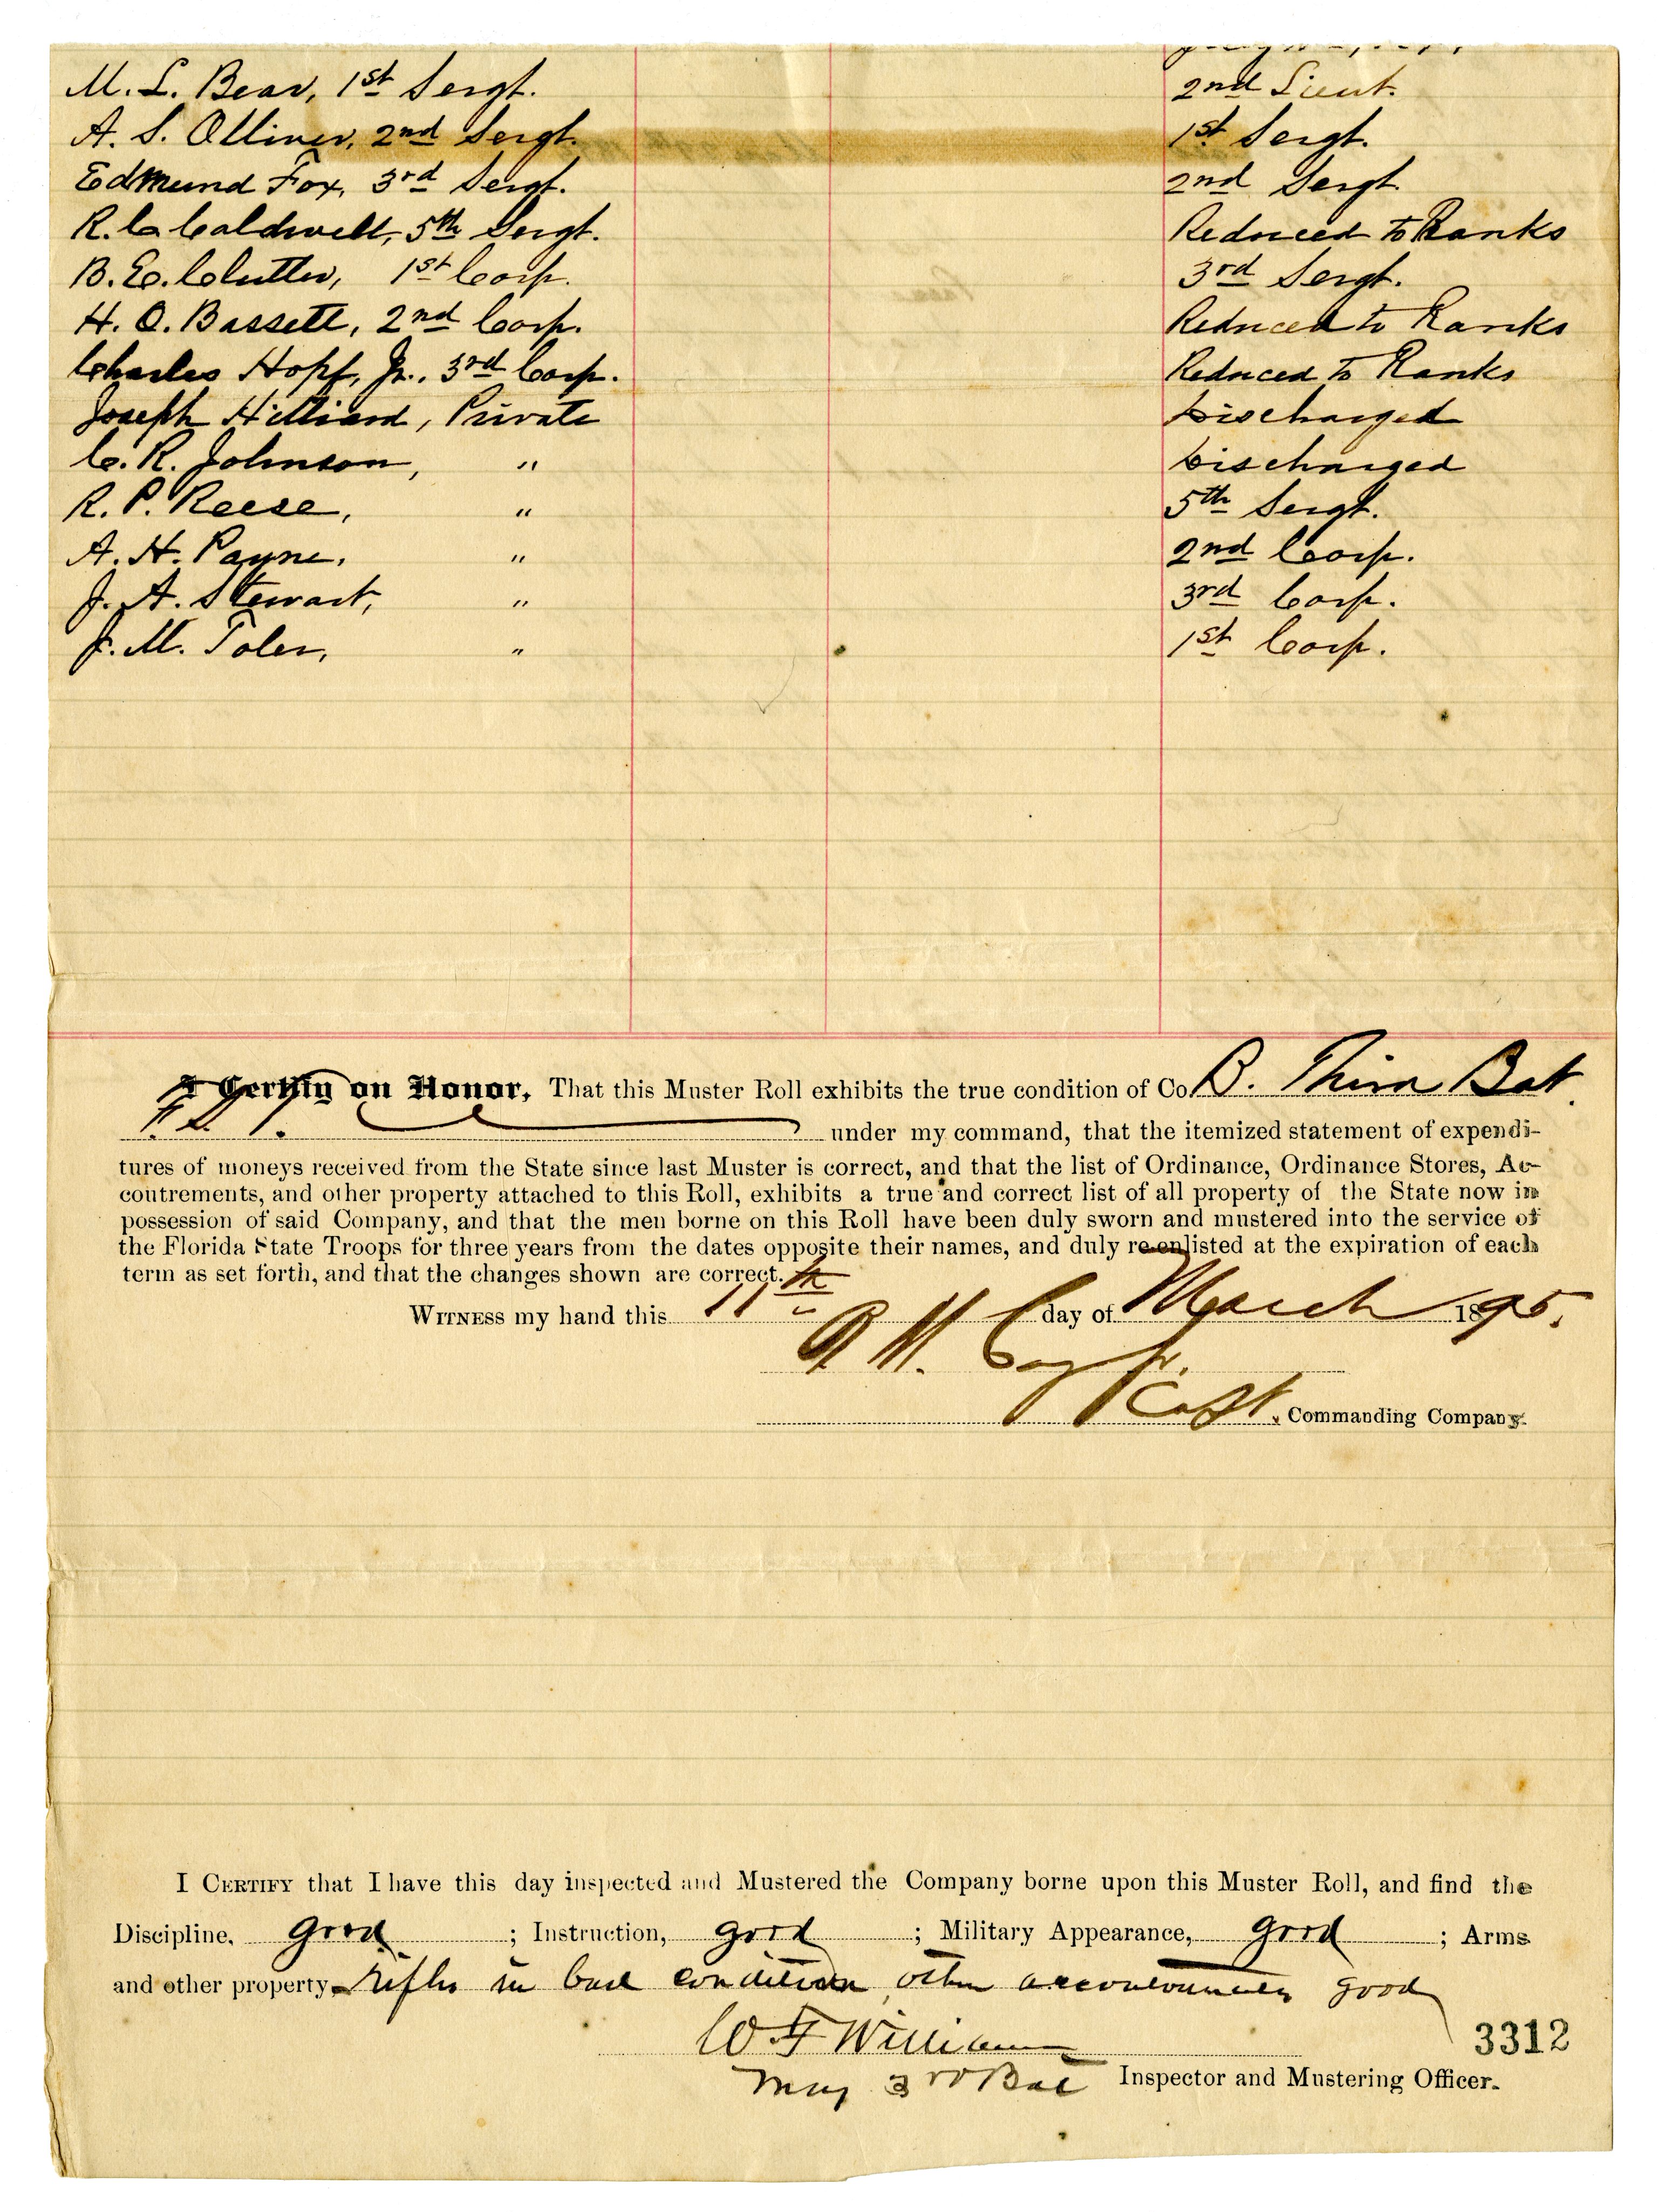 M. L. Bear, 1st Sergt. 2nd Lieut.
A. S. Olliver, 2nd Sergt. 1st Sergt.
Edmund Fox, 3rd Sergt. 2nd Sergt.
R. C. Caldwell, 5th Sergt. Reduced to Ranks
B. E. Clutter, 1st Corp. 3rd Sergt.
H. O. Bassett, 2nd Corp. Reduced to Ranks
Charles Hopf, Jr., 3rd Corp. Reduced to Ranks
Joseph Hilliard, Private Discharged
C. R. Johnson, " Discharged
R. P. Reese, " 5th Sergt.
A. H. Payne, " 2nd Corp.
J. A. Stewart, " 3rd Corp.
J. M. Toler, " 1st Corp.
I Certify on Honor, That this Muster Roll exhibits the true condition of Co B. Third Bat.
F. S. T. under my command, that the itemized statement of expendi-
tures of moneys received from the State since last Muster is correct, and that the list of Ordinance, Ordinance Stores, Ac-
coutrements, and other property attached to this Roll, exhibits a true and correct list of all property of the State now in
possession of said Company, and that the men borne on this Roll have been duly sworn and mustered into the service of
the Florida State Troops for three years from the dates opposite their names, and duly re-enlisted at the expiration of each
term as set forth, and that the changes shown are correct.
WITNESS my hand this 11th day of March 1895.
R. M. Cary Jr.
Capt., Commanding Company.
I CERTIFY that I have this day inspected and Mustered the Company borne upon this Muster Roll, and find the
Discipline, good ; Instruction, good ; Military Appearance, good ; Arms
and other property, rifles in bad condition, other accoutrements good
W F Williams
3312
Maj 3rd Bat Inspector and Mustering Officer.